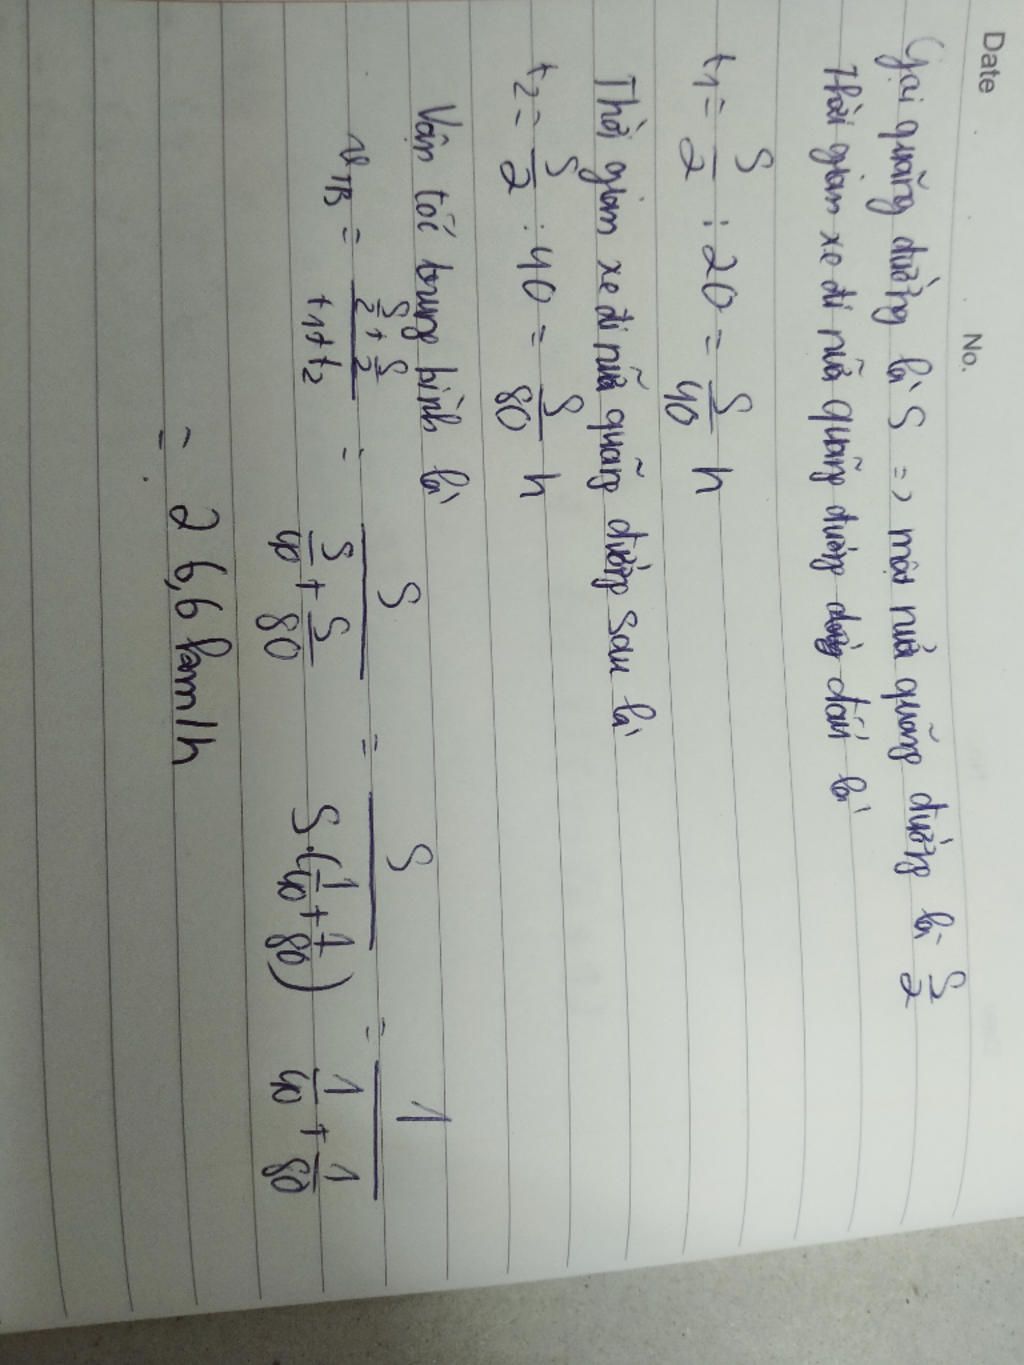 Date No.
Gọi quãng đường là S => một nửa quãng đường là S/2
Thời gian xe đi nửa quãng đường đầu là
t1 = S/2 : 20 = S/40 h
Thời gian xe đi nửa quãng đường sau là
t2 = S/2 : 40 = S/80 h
Vận tốc trung bình là
vTB = (S/2 + S/2)/(t1 + t2) = S/(S/40 + S/80) = S/(S.(1/40 + 1/80)) = 1/(1/40 + 1/80)
= 26,6 km/h